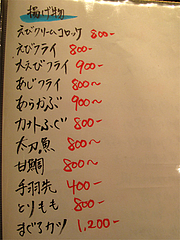 揚げ物
えびクリームコロッケ 800-
えびフライ 800-
大えびフライ 900-
あじフライ 800〜
あらかぶ 900〜
カナトふぐ 800-
太刀魚 800〜
甘鯛 800〜
手羽先 400-
とりもも 800-
まぐろカツ 1,200-